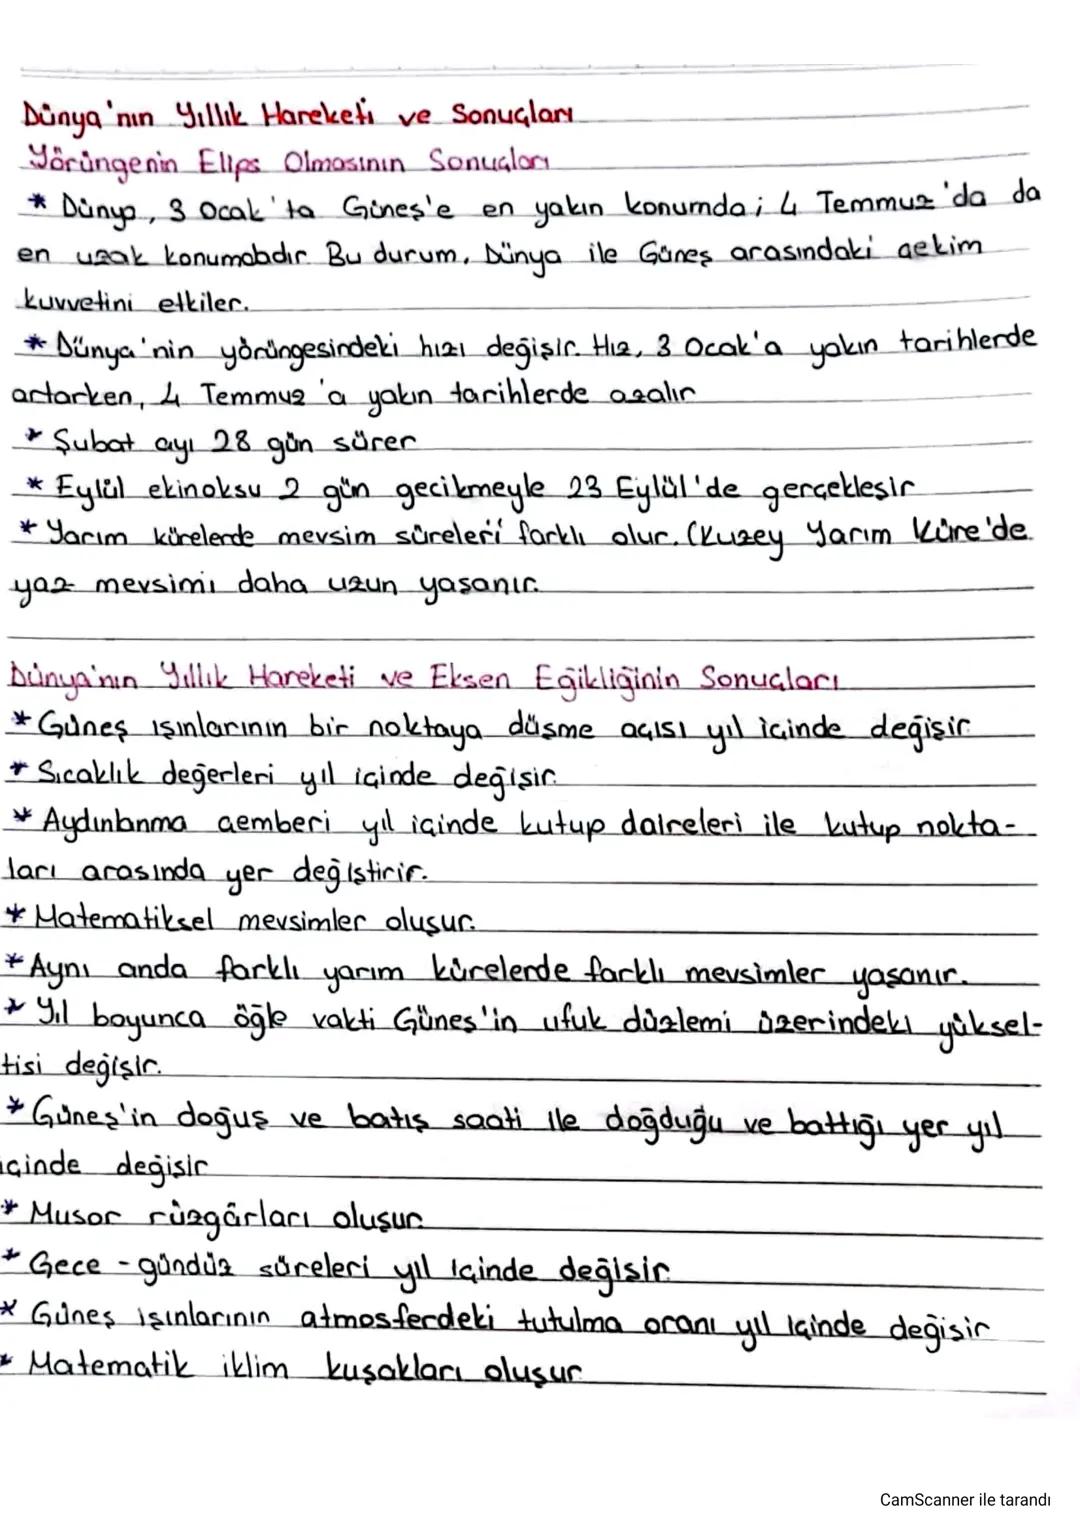 Dünya'nın Yıllık Hareketi ve Sonuçları
Yörüngenin Elips Olmasının Sonuçları
* Dünya, 3 Ocak'ta Güneş'e en yakın konumda; 4 Temmuz'da da
en uzak konumdadır. Bu durum, Dünya ile Güneş arasındaki çekim
kuvvetini etkiler.
* Dünya'nin yörüngesindeki hızı değişir. Hız, 3 Ocak'a yakın tarihlerde
artarken, 4 Temmuz'a yakın tarihlerde azalır
* Şubat ayı 28 gün sürer
* Eylül ekinoksu 2 gün gecikmeyle 23 Eylül'de gerçekleşir
* Yarım kürelerde mevsim süreleri farklı olur. (Kuzey Yarım Küre'de
yaz mevsimi daha uzun yaşanır.
Dünya'nın Yıllık Hareketi ve Eksen Eğikliğinin Sonuçları
* Güneş ışınlarının bir noktaya düşme açısı yıl içinde değişir.
* Sıcaklık değerleri yıl içinde değişir.
* Aydınlanma çemberi yıl içinde kutup daireleri ile kutup nokta-
ları arasında yer değiştirir.
* Matematiksel mevsimler oluşur.
* Aynı anda farklı yarım kürelerde farklı mevsimler yaşanır.
* Yıl boyunca öğle vakti Güneş'in ufuk düzlemi üzerindeki yüksel-
tisi değişir.
* Güneş'in doğuş ve batış saati ile doğduğu ve battığı yer yıl
içinde değişir
* Muson rüzgârları oluşur.
* Gece - gündüz süreleri yıl içinde değişir.
* Güneş ışınlarının atmosferdeki tutulma oranı yıl içinde değişir
* Matematik iklim kuşakları oluşur.
CamScanner ile tarandı